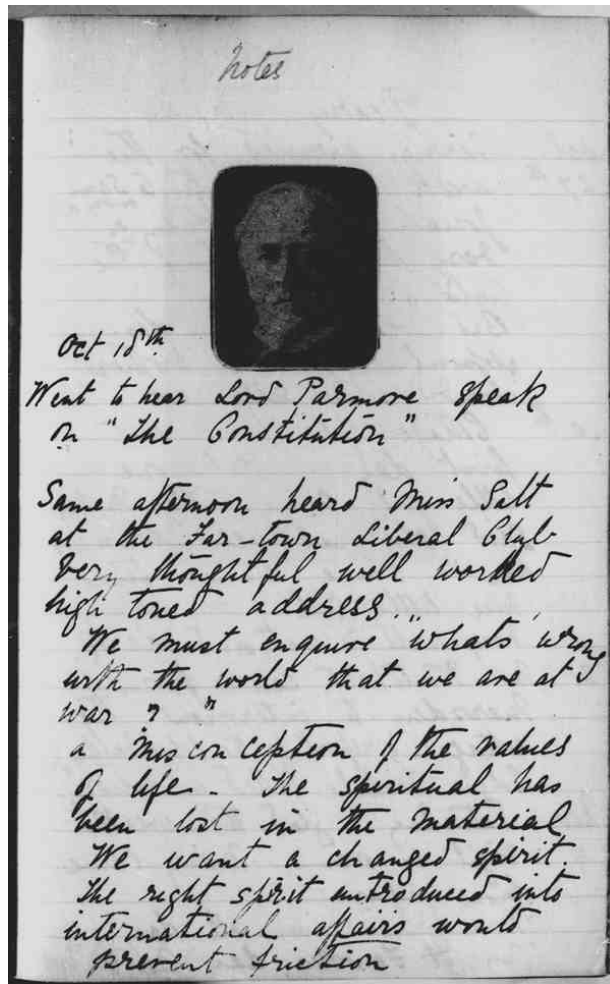 Notes
Oct 18th
Went to hear Lord Parmore speak
on "The Constitution"
Same afternoon heard Miss Salt
at the Far-town Liberal Club
Very thoughtful well worked
high toned address.
We must enquire "whats wrong
with the world that we are at
war? "
a misconception of the values
of life - The spiritual has
been lost in the material
We want a changed spirit.
The right spirit introduced into
international affairs would
prevent friction